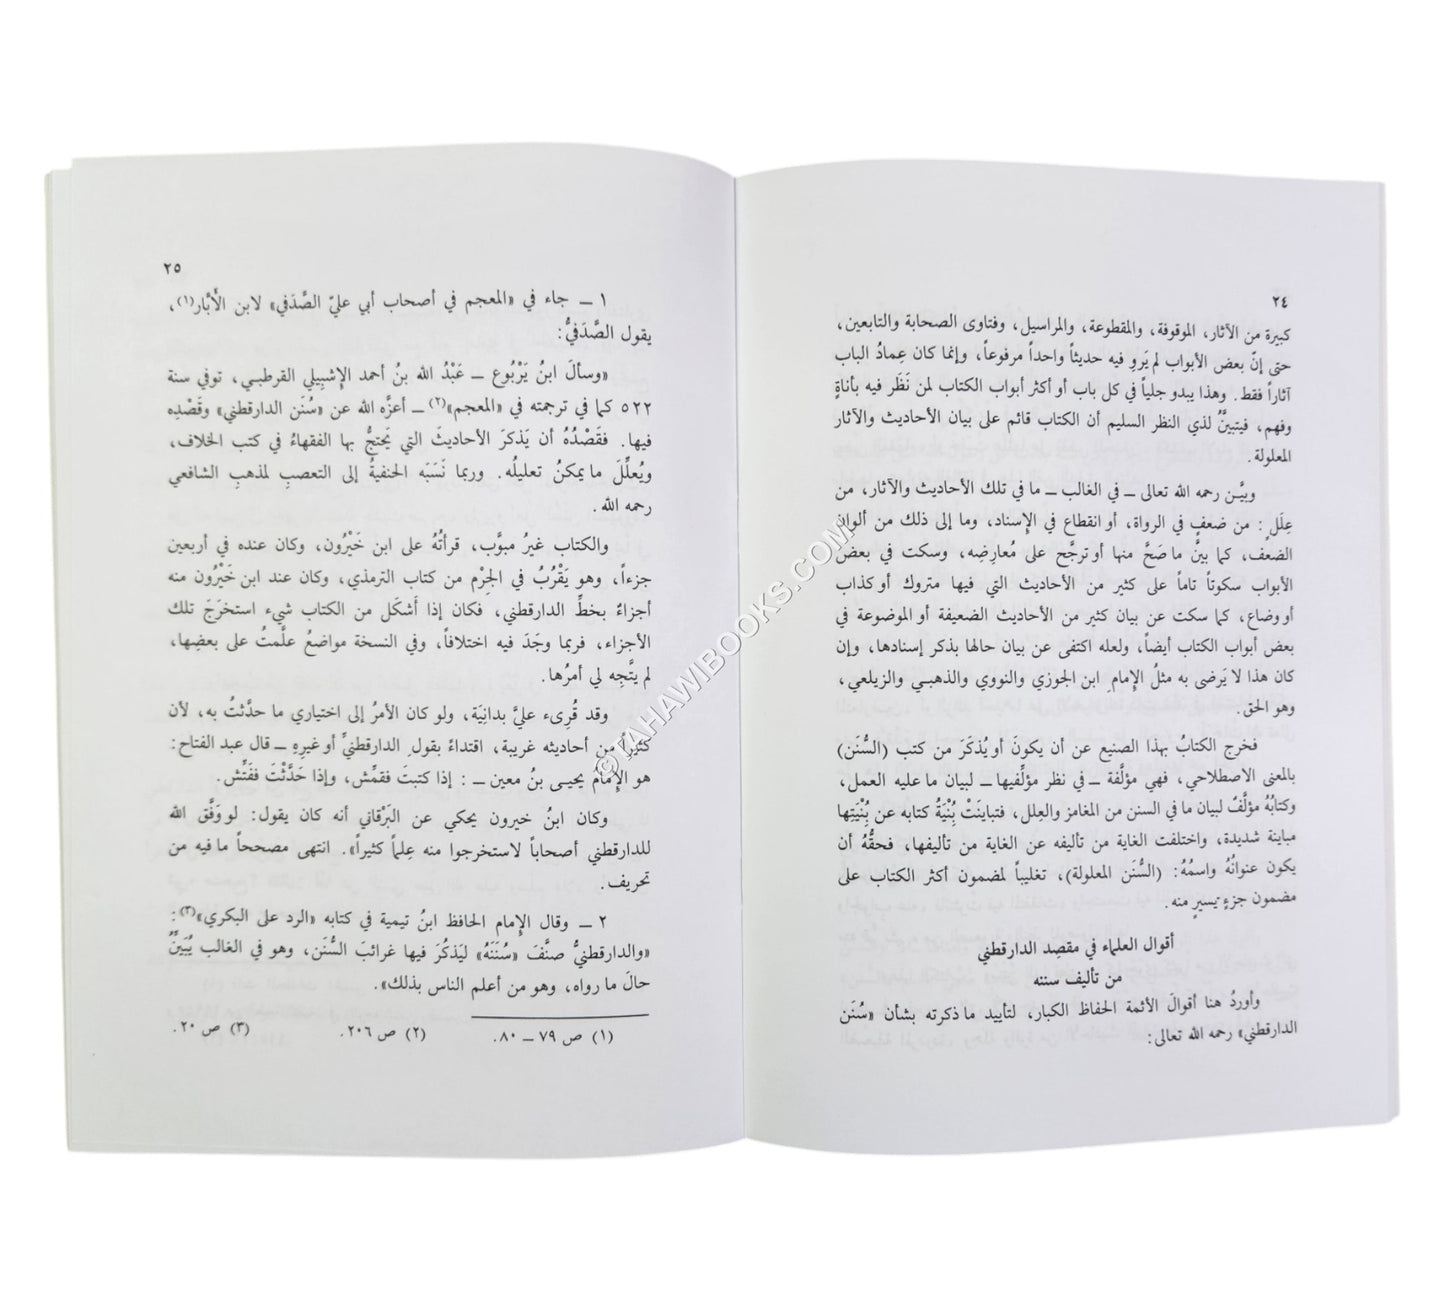 ٢٤
كبيرة من الآثار، الموقوفة، والمقطوعة، والمراسيل، وفتاوى الصحابة والتابعين،
حتى إنّ بعض الأبواب لم يَروِ فيه حديثاً واحداً مرفوعاً، وإنما كان عِمادُ الباب
آثاراً فقط. وهذا يبدو جلياً في كل باب أو أكثر أبواب الكتاب لمن نَظَر فيه بأناةٍ
وفهم، فيتبيَّنُ لذي النظر السليم أن الكتاب قائم على بيان الأحاديث والآثار
المعلولة.
وبيَّن رحمه الله تعالى ــ في الغالب ــ ما في تلك الأحاديث والآثار، من
عِلَلٍ: من ضعفٍ في الرواة، أو انقطاع في الإِسناد، وما إلى ذلك من ألوان
الضعف، كما بيَّن ما صَحَّ منها أو ترجَّح على مُعارِضِه، وسكت في بعض
الأبواب سكوتاً تاماً على كثير من الأحاديث التي فيها متروك أو كذاب
أو وضاع، كما سكت عن بيان كثير من الأحاديث الضعيفة أو الموضوعة في
بعض أبواب الكتاب أيضاً، ولعله اكتفى عن بيان حالها بذكر إسنادها، وإن
كان هذا لا يَرضى به مثلُ الإِمام ابن الجوزي والنووي والذهبي والزيلعي،
وهو الحق.
فخرج الكتابُ بهذا الصنيع عن أن يكونَ أو يُذكَرَ من كتب (السُّنَن)
بالمعنى الاصطلاحي، فهي مؤلَّفة ــ في نظر مؤلِّفيها ــ لبيان ما عليه العمل،
وكتابُهُ مؤلَّفٌ لبيان ما في السنن من المغامز والعِلل، فتباينَتْ بِنْيَةُ كتابه عن بِنْيَتِها
مباينة شديدة، واختلفت الغاية من تأليفه عن الغاية من تأليفها، فحقُّهُ أن
يكون عنوانُهُ واسمُهُ: (السُّنَن المعلولة)، تغليباً لمضمون أكثر الكتاب على
مضمون جزءٍ يسيرٍ منه.
أقوال العلماء في مقصِد الدارقطني
من تأليف سننه
وأُوردُ هنا أقوالَ الأئمة الحفاظ الكبار، لتأييد ما ذكرته بشأن «سُنَن
الدارقطني» رحمه الله تعالى:
٢٥
١ ــ جاء في «المعجم في أصحاب أبي عليّ الصَّدَفي» لابن الأَبَّار(١)،
يقول الصَّدَفيُّ:
«وسألَ ابنُ يَرْبُوع ــ عَبْدُ الله بنُ أحمد الإِشبيلي القرطبي، توفي سنة
٥٢٢ كما في ترجمته في «المعجم»(٢) ــ أعزَّه الله عن «سُنَن الدارقطني» وقَصْدِه
فيها. فقَصْدُهُ أن يَذكرَ الأحاديثَ التي يَحتجُّ بها الفقهاءُ في كتب الخلاف،
ويُعلِّلَ ما يمكنُ تعليلُه. وربما نَسَبَه الحنفيةُ إلى التعصبِ لمذهبِ الشافعي
رحمه الله.
والكتاب غيرُ مبوَّب، قرأتُهُ على ابن خَيْرُون، وكان عنده في أربعين
جزءاً، وهو يَقْرُبُ في الجِرْم من كتاب الترمذي، وكان عند ابن خَيْرُون منه
أجزاءٌ بخطِّ الدارقطني، فكان إذا أَشكَل من الكتاب شيء استخرَجَ تلك
الأجزاء، فربما وجَدَ فيه اختلافاً، وفي النسخة مواضعُ علَّمتُ على بعضِها،
لم يتَّجِه لي أمرُها.
وقد قُرِىء عليَّ بدانِيَة، ولو كان الأمرُ إلى اختياري ما حدَّثتُ به، لأن
كثيراً من أحاديثه غريبة، اقتداءً بقولِ الدارقطنيِّ أو غيرِهِ ــ قال عبد الفتاح:
هو الإِمامُ يحيى بنُ معين ــ : إذا كتبتَ فقمِّش، وإذا حَدَّثْتَ ففَتِّش.
وكان ابنُ خيرون يحكي عن البَرْقاني أنه كان يقول: لو وَفَّق الله
للدارقطني أصحاباً لاستخرجوا منه عِلماً كثيراً». انتهى مصححاً ما فيه من
تحريف.
٢ ــ وقال الإِمام الحافظ ابنُ تيمية في كتابه «الرد على البكري»(٣):
«والدارقطنيُّ صنَّفَ «سُنَنَهُ» ليَذكُرَ فيها غرائبَ السُّنَن، وهو في الغالب يُبَيِّنُ
حالَ ما رواه، وهو من أعلم الناس بذلك».
(١) ص ٧٩ ــ ٨٠. (٢) ص ٢٠٦. (٣) ص ٢٠.
©TAHAWIBOOKS.COM